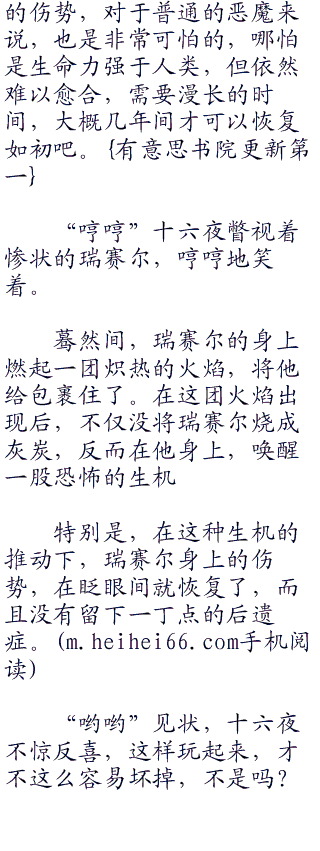 的伤势，对于普通的恶魔来
说，也是非常可怕的，哪怕
是生命力强于人类，但依然
难以愈合，需要漫长的时
间，大概几年间才可以恢复
如初吧。{有意思书院更新第
一}
“哼哼”十六夜瞥视着
惨状的瑞赛尔，哼哼地笑
着。
蓦然间，瑞赛尔的身上
燃起一团炽热的火焰，将他
给包裹住了。在这团火焰出
现后，不仅没将瑞赛尔烧成
灰炭，反而在他身上，唤醒
一股恐怖的生机
特别是，在这种生机的
推动下，瑞赛尔身上的伤
势，在眨眼间就恢复了，而
且没有留下一丁点的后遗
症。(m.heihei66.com手机阅
读)
“哟哟”见状，十六夜
不惊反喜，这样玩起来，才
不这么容易坏掉，不是吗?